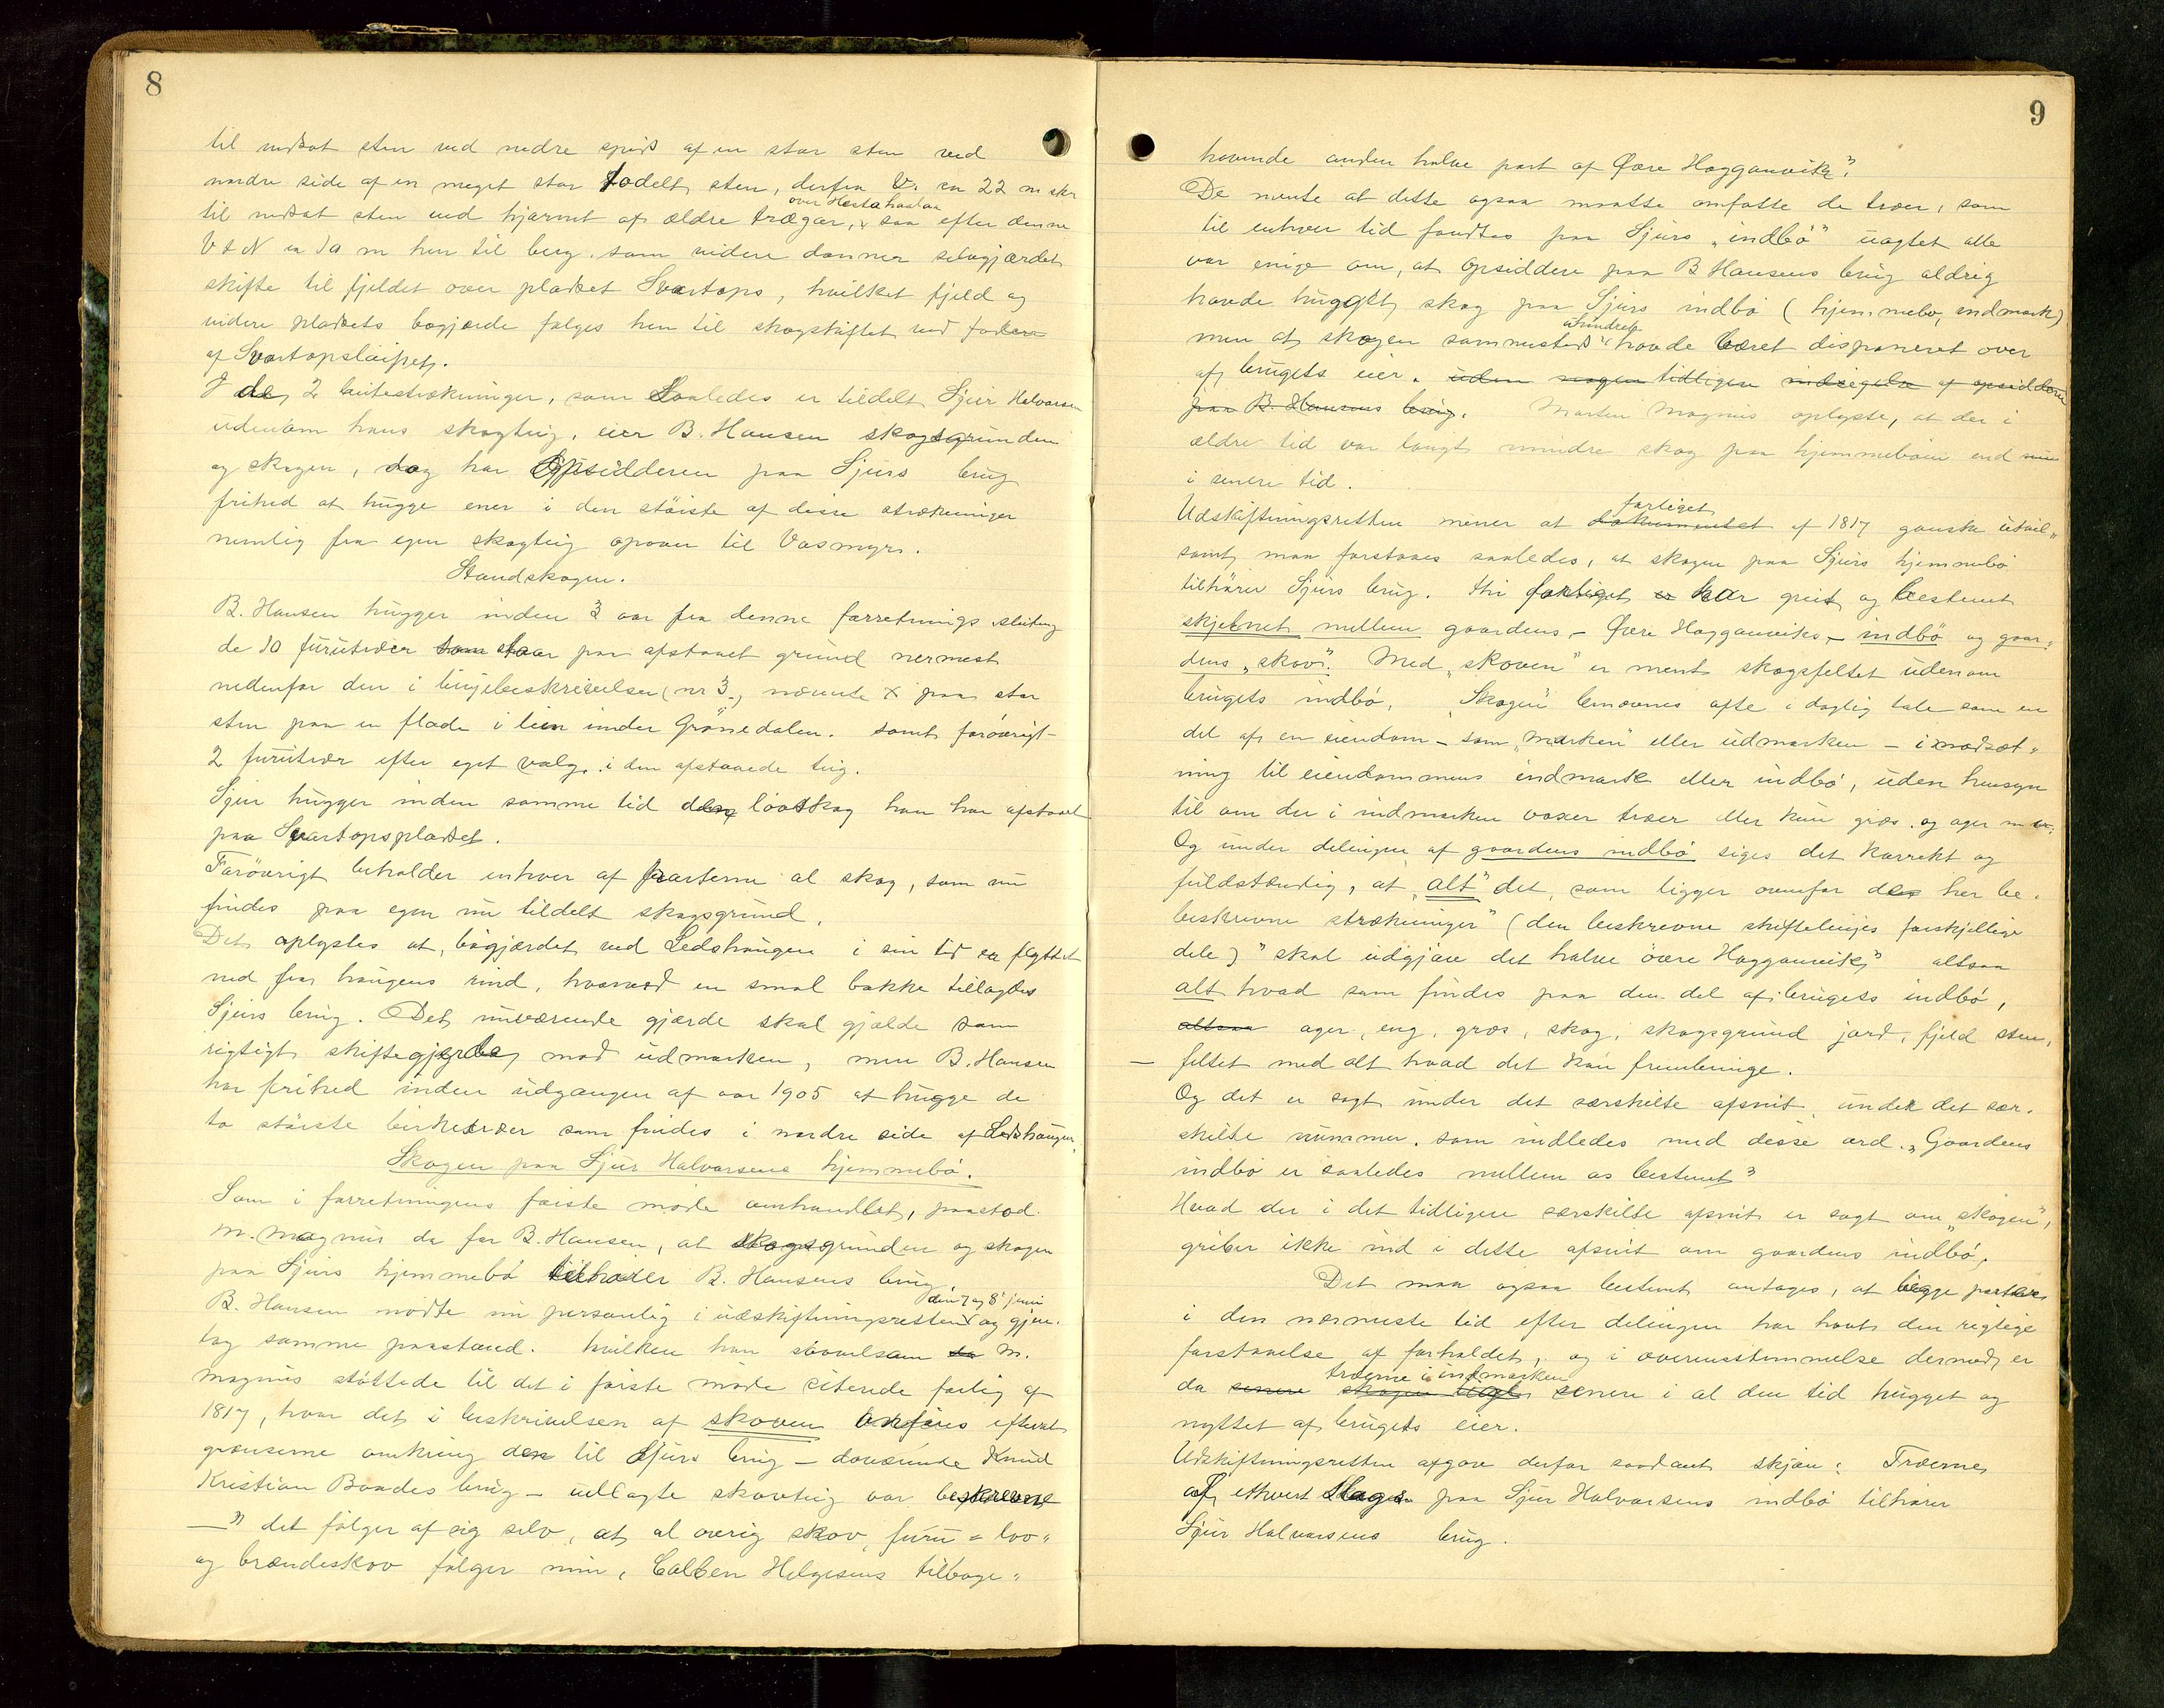 8
til nedsat sten ved nedre spids af en stor sten ved
nordre side af en meget stor todelt sten, derfra V. ca 22 m
til nedsat sten ved hjørnet af ældre trægar, over Hestahaalaa saa efter denne
V t N ca 10 m hen til berg. som videre danner selvgjærdet
skifte til fjeldet over pladset Svartops, hvilket fjeld og
videre pladsets bøgjærde følges hen til skogskiftet ved
af Svartopsløipet.
I de 2 beitestrækninger, som saaledes er tildelt Sjur Halvorsen
udenom hans skogteig, eier B. Hansen skogsgrunden
og skogen, dog har Opsidderen paa Sjurs brug
frihed at hugge ener i den største af disse strækninger
nemlig fra egen skogteig opover til Vasmyr.
Standskogen.
B. Hansen hugger inden 3 aar fra denne forretnings slutning
de 10 furutrær som staar paa afstaaet grund nermest
nedenfor den i linjebeskrivelsen (nr 3.) nævnte X paa stor
sten paa en flade i lien under Grønedalen. samt forøvrigt
2 furutrær efter eget valg. i den afstaaede teig.
Sjur hugger inden samme tid den løvskog han har afstaaet
paa Svartopspladset.
Forøvrigt beholder enhver af parterne al skog, som nu
findes paa egen nu tildelt skogsgrund.
Det oplystes at, bøgjærdet ved Ledshaugen i sin tid er flyttet
ned fra haugens rind, hvorved en smal bakke tillagdes
Sjurs brug. Det nuværende gjærde skal gjælde som
rigtigt skiftegjærde mod udmarken, men B. Hansen
har frihed inden udgangen af aar 1905 at hugge de
to største birketrær som findes i nordre side af Ledshaugen.
Skogen paa Sjur Halvorsens hjemmebø.
Som i forretningens første møde omhandlet, paastod
M. Magnus da for B. Hansen, at skogsgrunden og skogen
paa Sjurs hjemmebø tilhører B. Hansens brug.
B. Hansen mødte nu personlig i udskiftningsretten den 7 og 8' juni og gjen-
tog samme paastand. hvilken han saavelsom da M.
Magnus støttede til det i første møde citerede forlig af
1817, hvor det i beskrivelsen af skoven anføres efterat
grænserne omkring den til Sjurs brug – daværende Knud
Kristian Baades brug – udlagte skovteig var beskrevne
– " det følger af sig selv, at al øvrig skov, furu = løv "
og brændeskov følger min, Colben Helgesens tilbage "
9
havende anden halve part af Øvre Haggamvik".
De mente at dette ogsaa maatte omfatte de træer, som
til enhver tid fandtes paa Sjurs "indbø" uagtet alle
var enige om, at Opsiddere paa B Hansens brug aldrig
havde hugget skog paa Sjurs indbø (hjemmebø, indmark)
men at skogen sammesteds uhindret havde været disponeret over
af brugets eier. uden nogen tidligere indsigelse af opsiddere
paa B. Hansens brug. Martin Magnus oplyste, at der i
ældre tid var langt mindre skog paa hjemmebøen end nu
i senere tid.
Udskiftningsretten mener at dokumentet forliget af 1817 ganske utvil"
somt maa forstaaes saaledes, at skogen paa Sjurs hjemmebø
tilhører Sjurs brug. thi forliget er har greit og bestemt
skjelnet mellem gaardens – Øvre Haggamviks – indbø og gaar-
dens "skov". Med "skoven" er ment skogsfeltet udenom
brugets indbø. "Skogen" benævnes ofte i daglig tale som en
del af en eiendom – som "marken" eller udmarken – i modsæt-
ning til eiendommens indmark eller indbø, uden hensyn
til om der i indmarken voxer træer eller kun græs. og ager m v.
Og under delingen af gaardens indbø siges det korrekt og
fuldstændig, at "alt" det, som ligger ovenfor des her be-
beskrevne strækninger" (den beskrevne skiftelinjes forskjellige
dele) " skal udgjøre det halve øvre Haggamvik" altsaa
alt hvad som findes paa den del af brugets indbø,
altsaa ager, eng, græs, skog, skogsgrund jord, fjeld sten,
– feltet med alt hvad det kan frembringe.
Og det er sagt under det særskilte afsnit, under det sær-
skilte nummer, som indledes med disse ord. "Gaardens
indbø er saaledes mellem os bestemt"
Hvad der i det tidligere særskilte afsnit er sagt om "skogen",
griber ikke ind i dette afsnit om gaardens indbø.
Det maa ogsaa bestemt antages, at begge parter
i den nærmeste tid efter delingen har havt den rigtige
forstaaelse af forholdet, og i overensstemmelse dermed er
da senere skogen træerne i indmarken senere i al den tid hugget og
nyttet af brugets eier.
Udskiftningsretten afgav derfor saadant skjøn: Træerne
af ethvert slags paa Sjur Halvorsens indbø tilhører
Sjur Halvorsens brug.